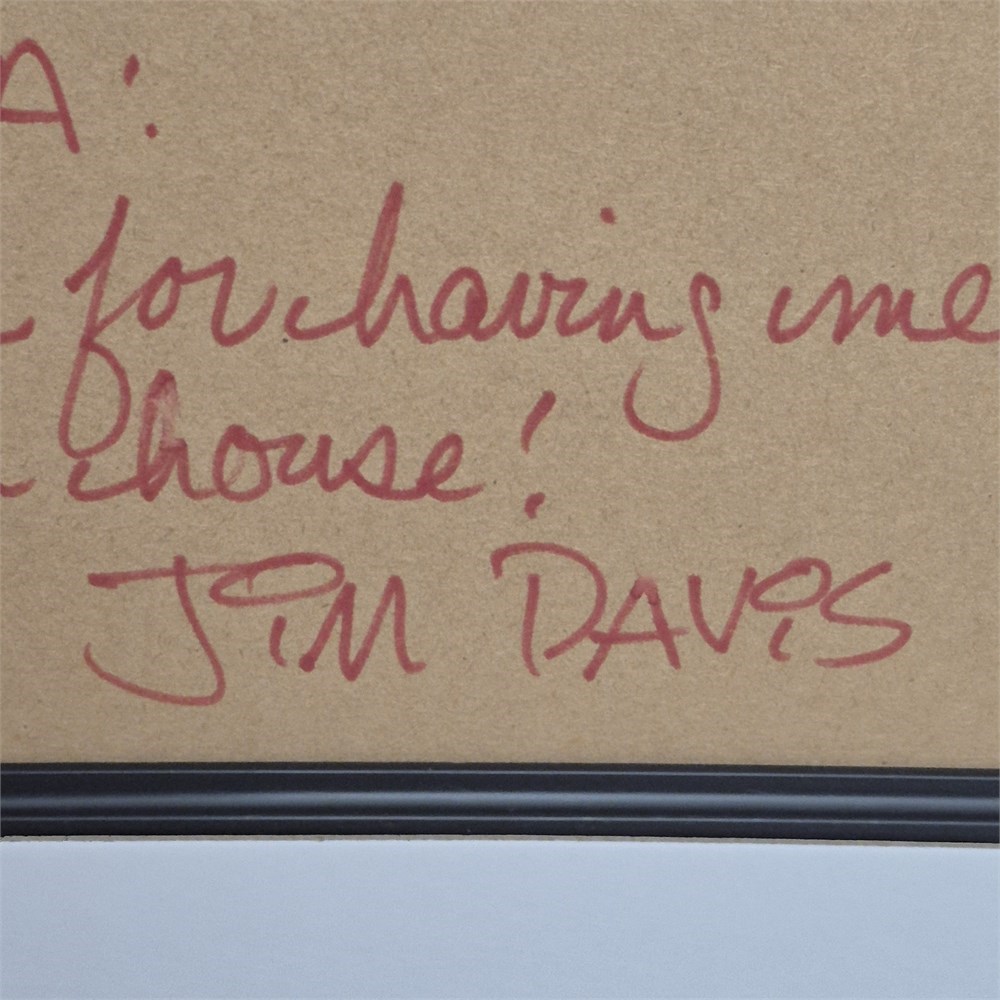 A:
for having me
house!
JiM DAViS